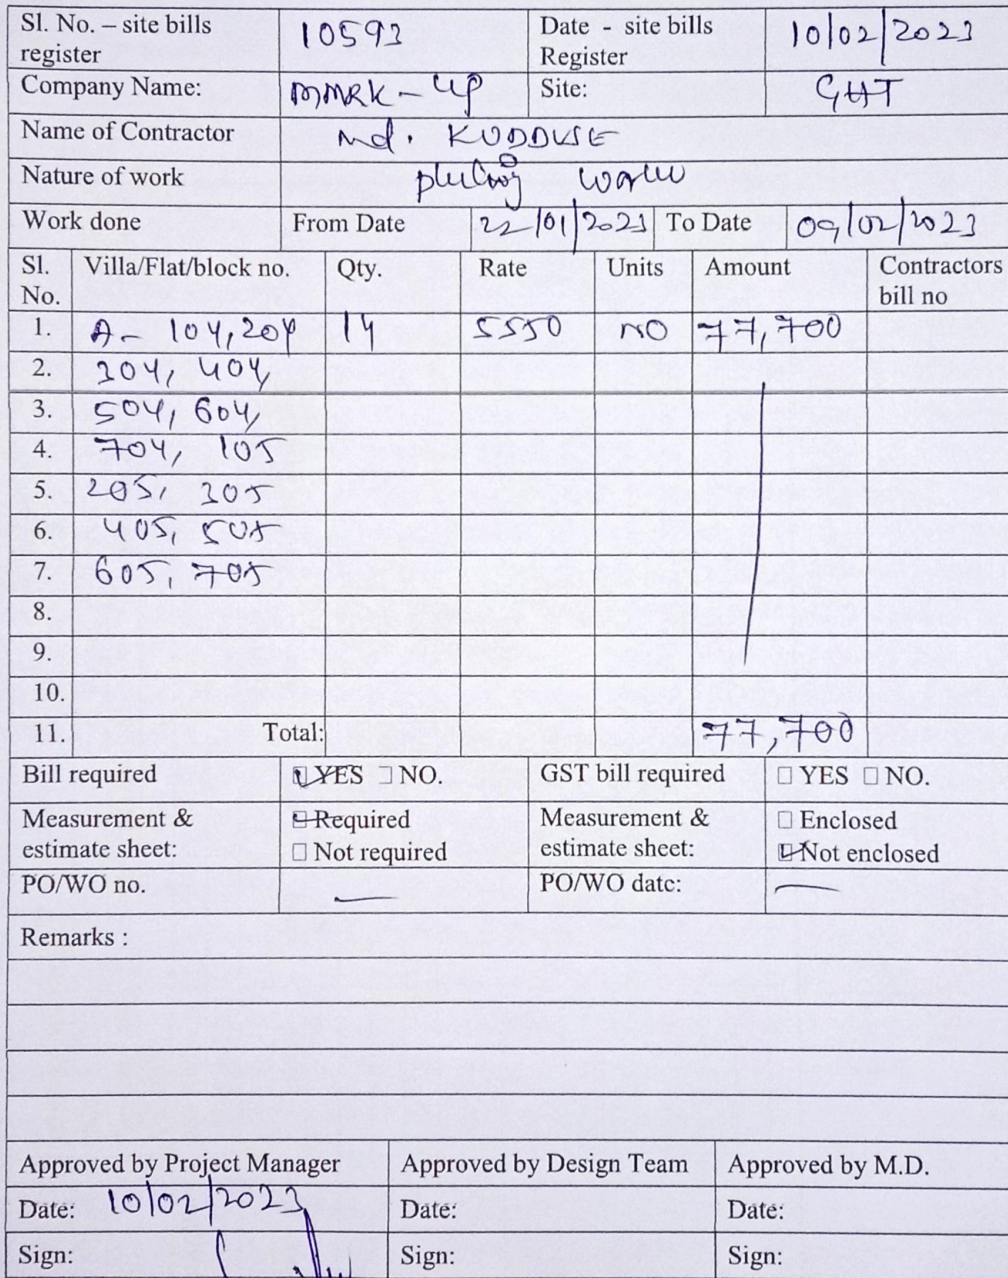 Sl. No. – site bills register 10593 Date - site bills Register 10/02/2023
Company Name: MMRK-UP Site: GHT
Name of Contractor Md. KUDDUSE
Nature of work
Work done From Date 22/01/2023 To Date 09/02/2023
Sl. No. Villa/Flat/block no. Qty. Rate Units Amount Contractors bill no
1. A- 104, 204 14 5550 NO 77,700
2. 304, 404,
3. 504, 604,
4. 704, 105
5. 205, 305
6. 405, 505
7. 605, 705
8.
9.
10.
11. Total: 77,700
Bill required YES NO. GST bill required YES NO.
Measurement & estimate sheet: Required Not required Measurement & estimate sheet: Enclosed Not enclosed
PO/WO no. — PO/WO date: —
Remarks :
Approved by Project Manager Approved by Design Team Approved by M.D.
Date: 10/02/2023 Date: Date:
Sign: Sign: Sign: